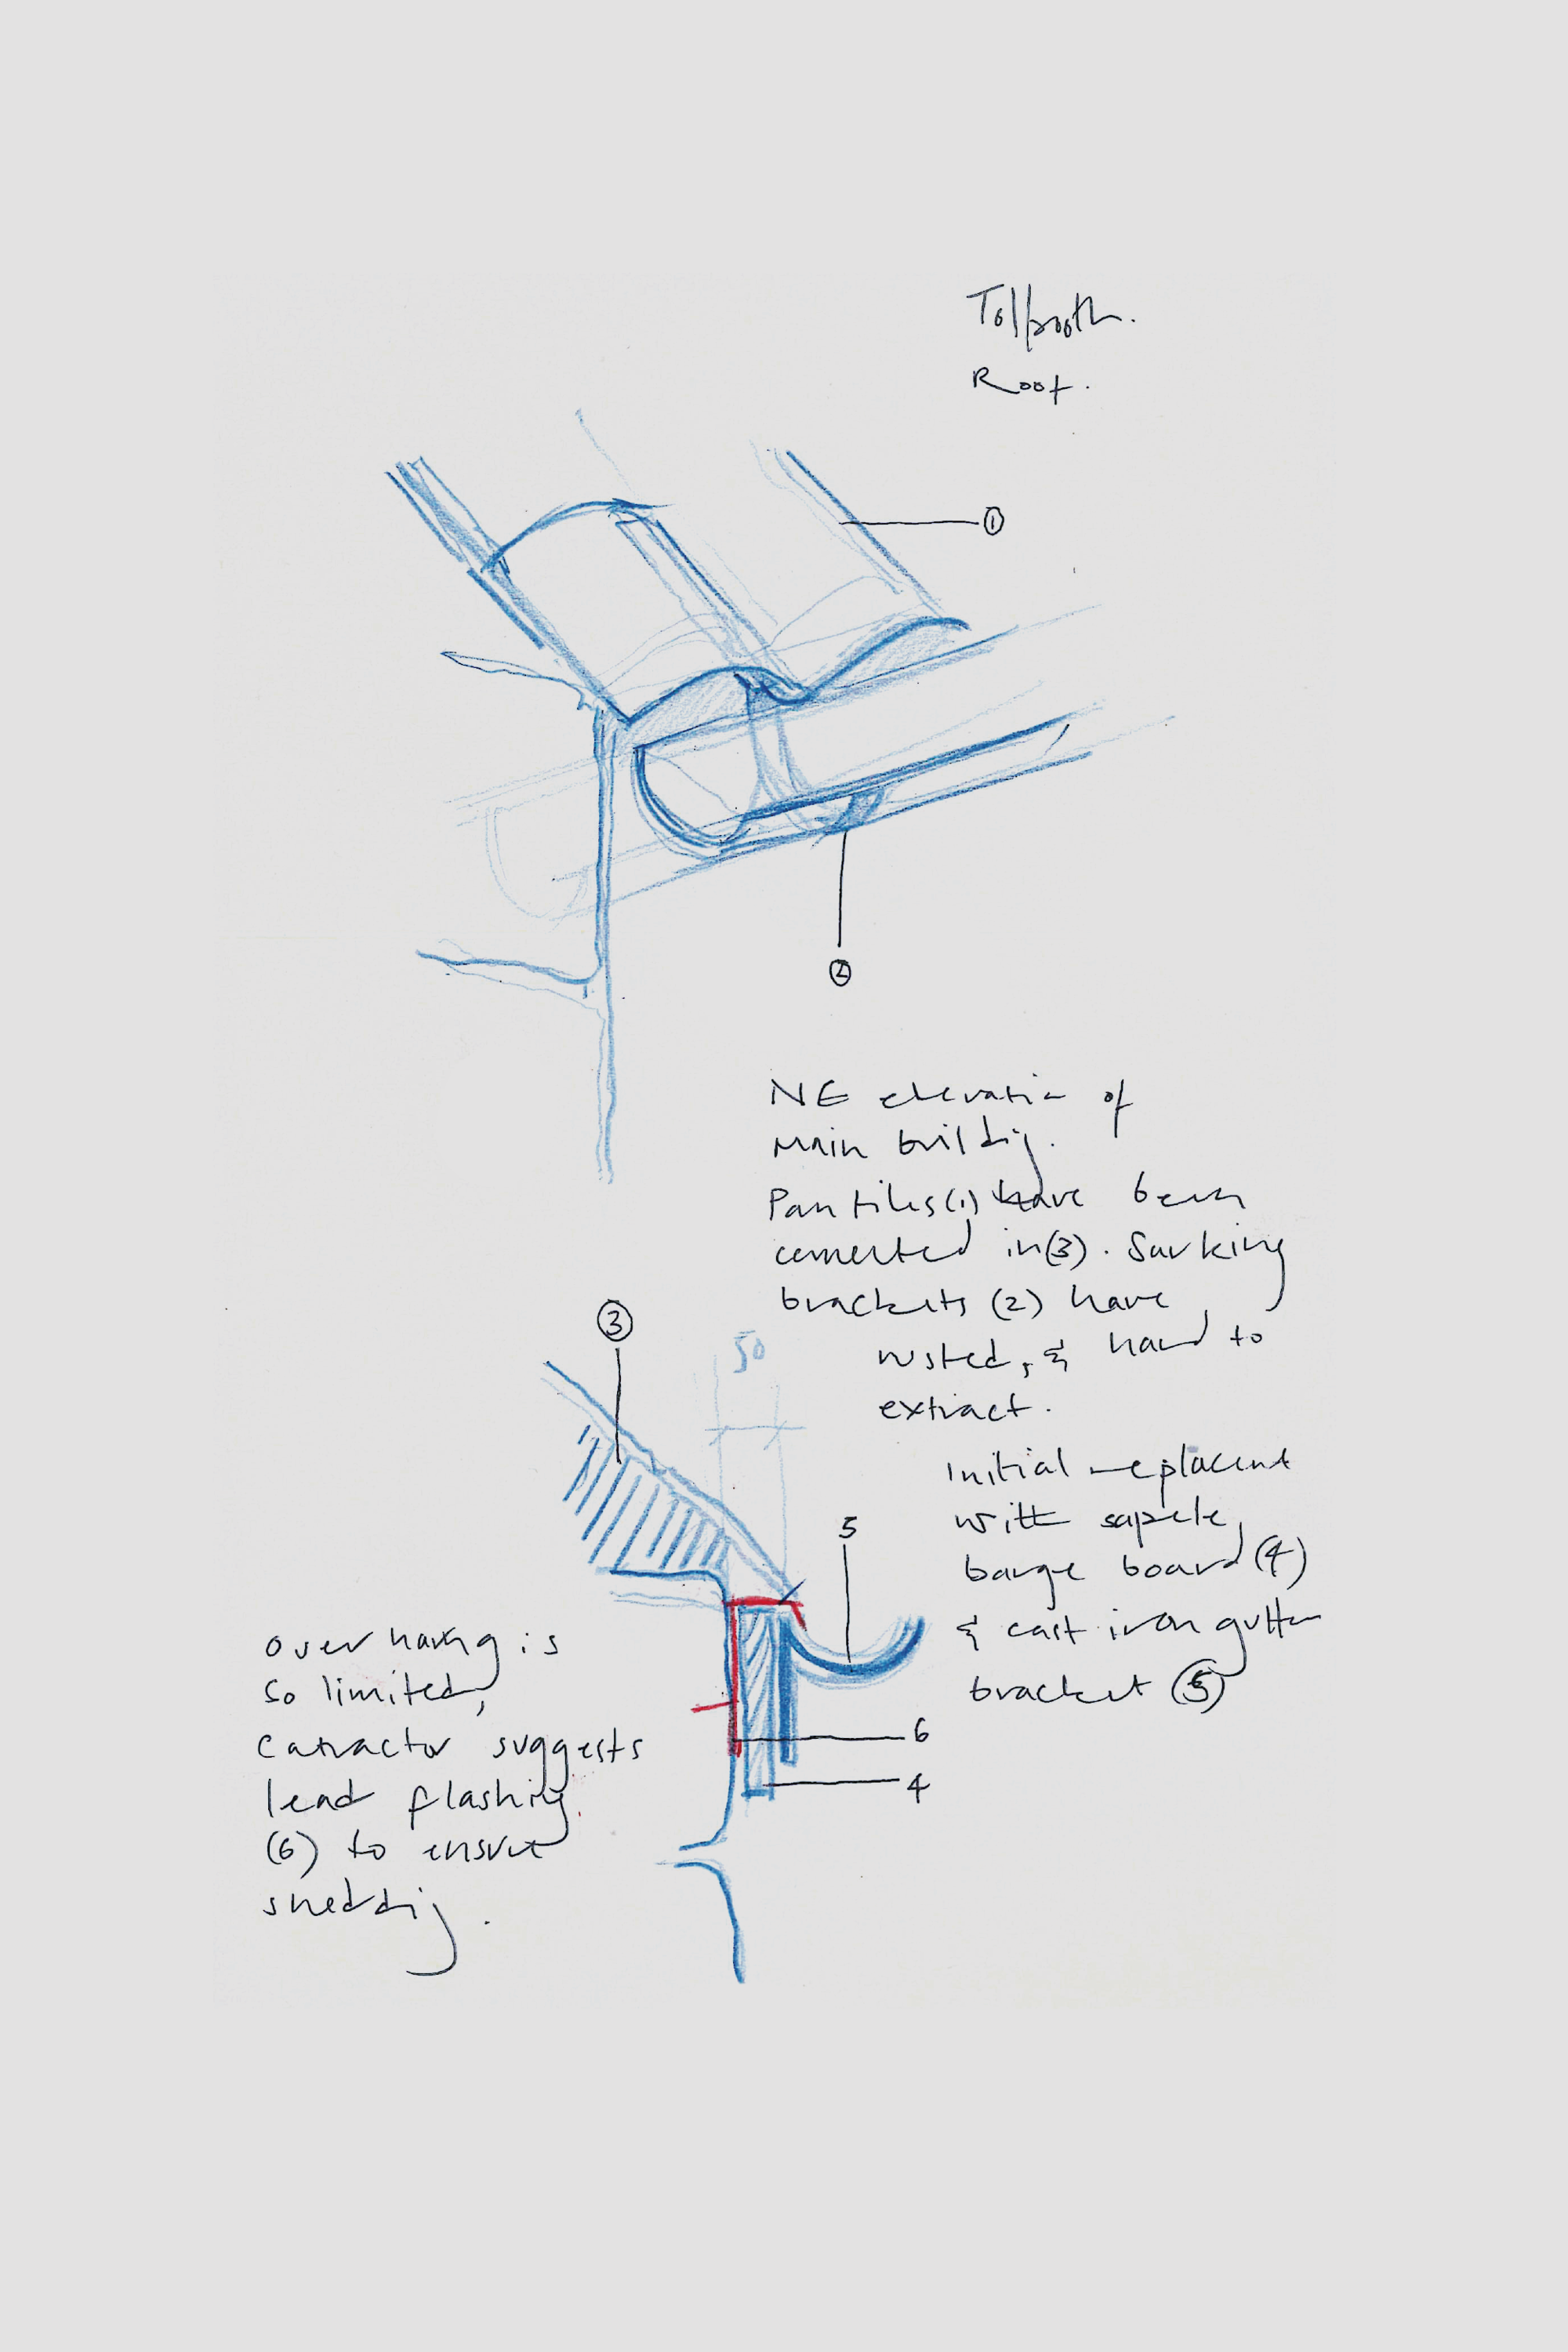 Tolbooth.
Roof.
①
②
NE elevation of
main building.
Pantiles (1) have been
cemented in (3). Sarking
brackets (2) have
rusted, & hard to
extract.
③
50
Initial replacement
with sapele
barge board (4)
& cast iron gutter
bracket (5)
5
6
4
overhang is
so limited,
contractor suggests
lead flashing
(6) to ensure
shedding.